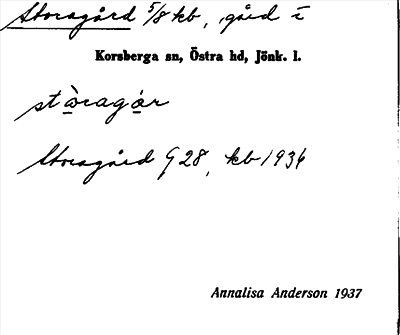 Storagård 5/8 kb, gård i
Korsberga sn, Östra hd, Jönk. l.
stòragár
Storagård G28, kb 1936
Annalisa Anderson 1937